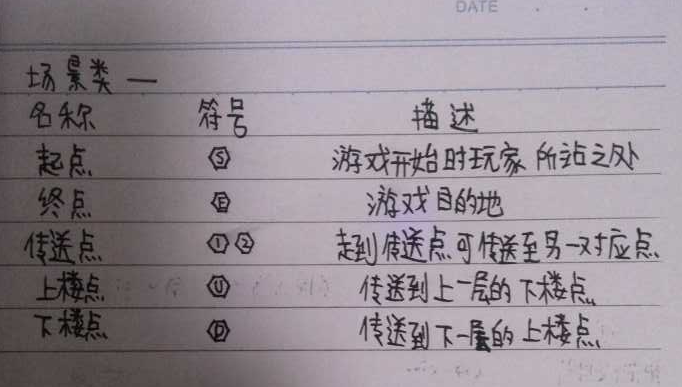 DATE
场景类 —
名称 符号 描述
起点 Ⓢ 游戏开始时玩家所站之处
终点 Ⓔ 游戏目的地
传送点 ① ② 走到传送点可传送至另一对应点
上楼点 Ⓤ 传送到上一层的下楼点
下楼点 Ⓓ 传送到下一层的上楼点